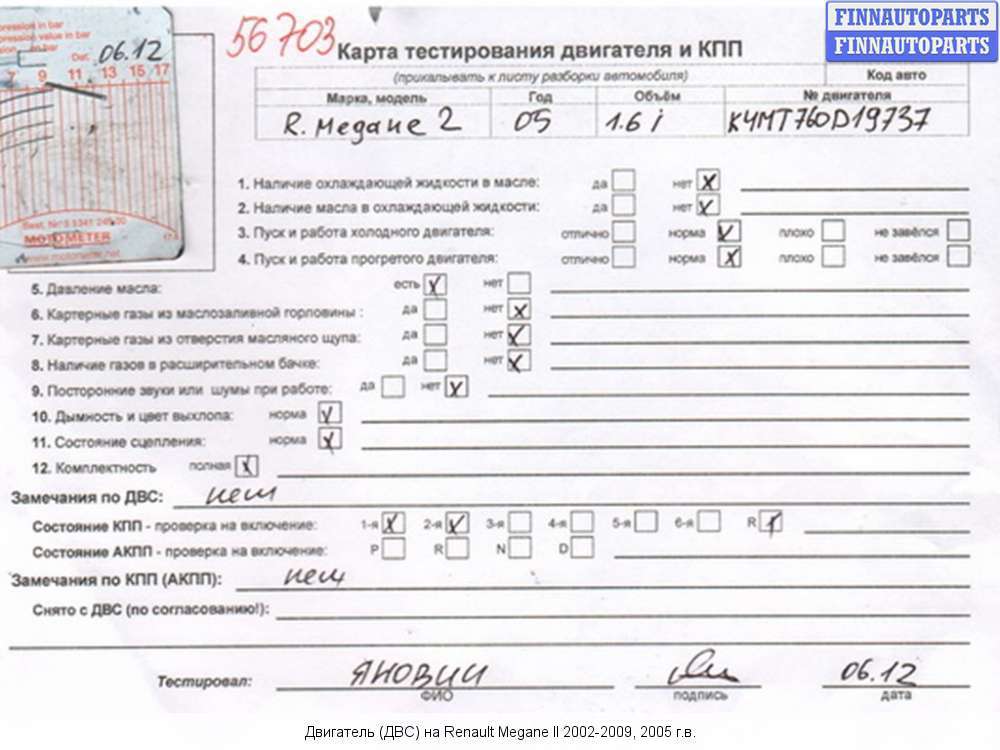 FINNAUTOPARTS
FINNAUTOPARTS
56703
06.12
7 9 11 13 15 17
MOTOMETER
www.motometer.net
Карта тестирования двигателя и КПП
(прикалывать к листу разборки автомобиля)
Код авто
Марка, модель Год Объём № двигателя
R. Megane 2 05 1.6 i K4MT760D19737
1. Наличие охлаждающей жидкости в масле: да нет X
2. Наличие масла в охлаждающей жидкости: да нет X
3. Пуск и работа холодного двигателя: отлично норма X плохо не завёлся
4. Пуск и работа прогретого двигателя: отлично норма X плохо не завёлся
5. Давление масла: есть X нет
6. Картерные газы из маслозаливной горловины : да нет X
7. Картерные газы из отверстия масляного щупа: да нет X
8. Наличие газов в расширительном бачке: да нет X
9. Посторонние звуки или шумы при работе: да нет X
10. Дымность и цвет выхлопа: норма X
11. Состояние сцепления: норма X
12. Комплектность полная X
Замечания по ДВС: нет
Состояние КПП - проверка на включение: 1-я X 2-я X 3-я 4-я 5-я 6-я R X
Состояние АКПП - проверка на включение: P R N D
Замечания по КПП (АКПП): нет
Снято с ДВС (по согласованию!):
Тестировал: 06.12
ФИО подпись дата
Двигатель (ДВС) на Renault Megane II 2002-2009, 2005 г.в.